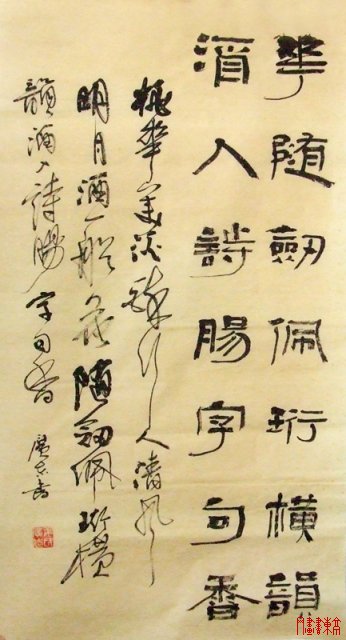 華隨劍佩珩橫韻
酒入詩腸字句香
桃華人清風
明月酒一船花隨劍佩珩橫
韻酒入詩腸字句香